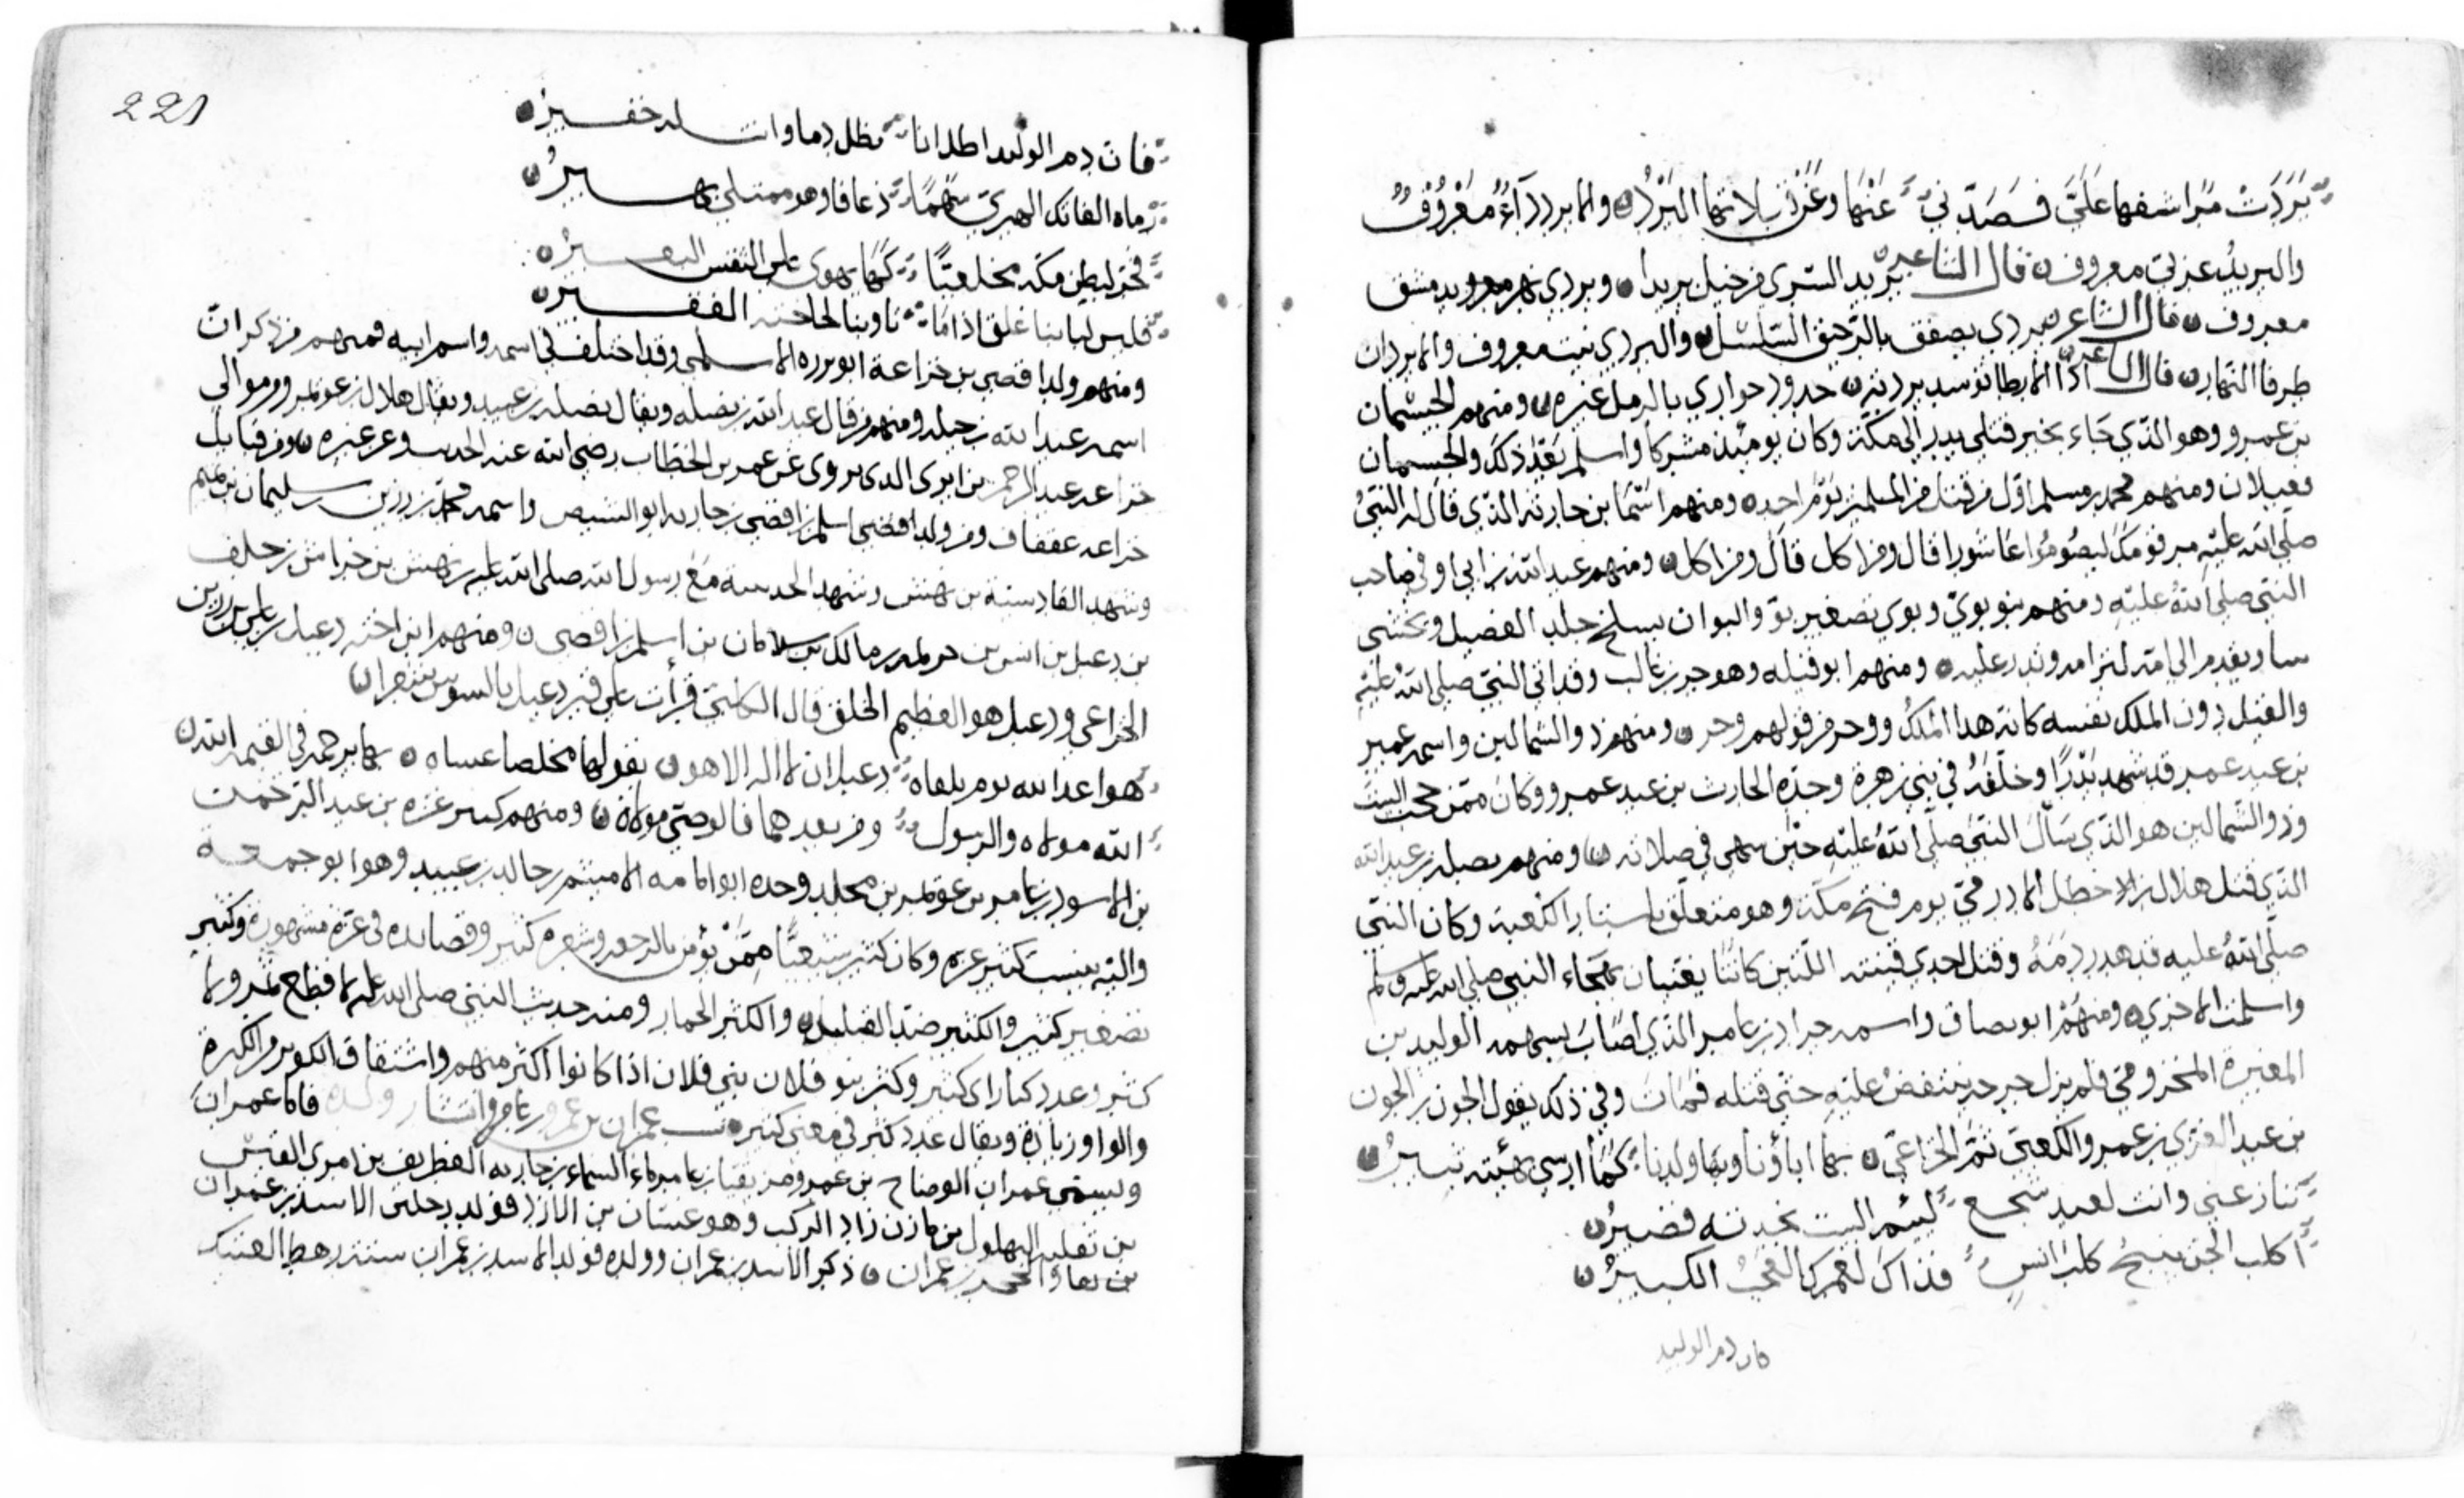 بَرَدَتْ مَراشفها عَلَيَّ فصَدّني عَنْها وعَنْ قبلاتها البَرْدُ والابردداءٌ مَعْرُوفٌ
والبريدُ عزبيّ معروف قال الشاعر بريد السري بريدا وبردي نهر بدمشق
معروف قال الشاعر بردي يصفق بالرّحيق السّلسل والبردي نبت معروف والابردان
طرفا النهار قال الشاعر اذا الارطا توسد برديه خدود جواري بالرمل عين ومنهم الحيسمان
بن عمرو وهو الذي جَاء بخبر قتلي بدر الي مكّة وكان يومئذ مشركا واسلم بعد ذلك والحيسمان
فعيلان ومنهم محمد بن مسلم اوّل من قتل من المسلمين يوم احد ومنهم اسْمَا بن حارثة الذي قال له النبيُّ
صلّى الله عليه مر قومك ليصُومُوا عَاشورا قال ومن اكل قال ومن اكل ومنهم عبد الله بن ابي اوفي صاحب
النبي صلى اللهُ عليه ومنهم بنو بويّ وبوي تصغير بوّ والبو ان يسلخ جلد الفصيل ويحشى
ويقدم الي امه لترامه وتدر عليه ومنهم ابو قيله وهو جز بن غالب وقد اتي النبيّ صلى الله عليه
والقيل دون الملك نفسه ومنهم ذو الشمالين واسمه عمير
بن عبد عمرو قد شهد بَدْرًا وخلفُه في بني زهرة وجدّه الحارث بن عبد عمرو وكان ممّن حجب البيت
وذو الشمالين هو الذي سَأَلَ النبيّ صلّى اللهُ عليه حين سهى في صلاته ومنهم نضله بن عبد الله
الذي قتل هلال بن الاخطل الادرميّ يوم فتح مكّة وهو متعلق باستار الكعبة وكان النبي
صلّى اللهُ عليه قد هدر دمَهُ وقتل احدي قينتيه اللّتين كانتا يغنيان بهجاء النبي صلى الله عليه وسلم
واسلمت الاخري ومنهُمْ ابو بصاق واسمه جراد بن عامر الذي اصَابَ بسهمه الوليد بن
المغيرة المخزوميّ فلم يزل جرحه ينتقض عليه حتّى قتله فمات وفي ذلك يقول الجون بن الجون
بن عبد العزي بن عمرو الكعبيّ ثمّ الخزاعيّ بها اباؤنا وبها ولدنا كما ارسي بهيئته ثبيرُ
تنازعني وانت لعبد شجع لئيم البيت نخدته قصيرُ
أكلب الجن ينبح كلب انسٍ فذاك لعمرك الكبيرُ
فان دم الوليد
221
فان دم الوليد اطل انا نطل دما وانت له خفيرُ
رماه الفاتك الهبريّ سَهمًا ذعافا وهو ممتلئ بهيرُ
فخر لبطن مكة مجلعبّا كما يهوى على النفس البعيرُ
فليس لبابنا غلق اذا مَا ناوبنا لحاجته الفقير
ومنهم ولد افصى بن خزاعة ابو برزه الاسلمي وقد اختلف في اسمه واسم ابيه فمنهم من ذكر ان
اسمه عبد الله بن ومنهم من قال عبد الله بن نضله ويقال نضله بن عبيد ويقال هلال بن عويمر ومن موالي
خزاعه عبد الرحمن بن ابزى الذى يروى عن عمر بن الخطّاب رضي الله عنه الحديث وعن غيره ومن قبايل
خزاعه عفقاف ومن ولد افصى اسلم بن افصى بن حارثه ابو الشيص واسمه محمّد بن رزين بن سليمان بن تميم
وشهد القادسيّة بن نهش وشهد الحديبية مَعَ رسول الله صلى الله عليه بن نهش بن خراش بن خلف
بن دعبل بن انس بن خزيمه بن مالك بن سلامان بن اسلم بن افصى ومنهم ابن اخيه دعبل بن علي بن رزين
الخزاعي ودعبل هو العظيم الخلق قال الكلبي قرأت على قبر دعبل بالسوس شعرا
هوا عد الله يوم يلقاه دعبل ان لا اله الا هو يقولها مخلصا عساه بها يرحمه في القيمه الله
الله مولاه والرسول ومن بعدهما فالوصيّ مولاه ومنهم كثير عزه بن عبد الرّحمن
بن الاسود بن عامر بن عويمر بن مخلد وجده ابو امه الاشيم بن خالد بن عبيد وهو ابو جمعة
واليه ينسب كثير عزه وكان كثير شيعيًّا ممّن يؤمن بالرجعه وشعره كثير وقصايده في عزّه مشهورة وكثير
تصغير كثير والكثير ضدّ القليل والكثر الجمار ومنه حديث النبي صلى الله عليه لا قطع ثمر ولا
كثر وعدد كثار اى كثير وكثر بنو فلان بني فلان اذا كانوا اكثر منهم واشتقاق الكوثر من الكثرة
والواو زيادة ويقال عدد كثر في معنى كثير نسب عمران بن عمرو بن عامر وانتشار ولده فاما عمران
ويسمّى عمران الوضاح بن عمرو مزيقيا بن عامر ماء السماء بن حارثه الغطريف بن امرى القيس
بن ثعلبه البهلول بن مازن زاد الركب وهو غسّان بن الازد فولد رجلين الاسد بن عمران
والحجر بن عمران ذكر الاسد بن عمران وولده فولد الاسد بن عمران ستة رهط العتيك